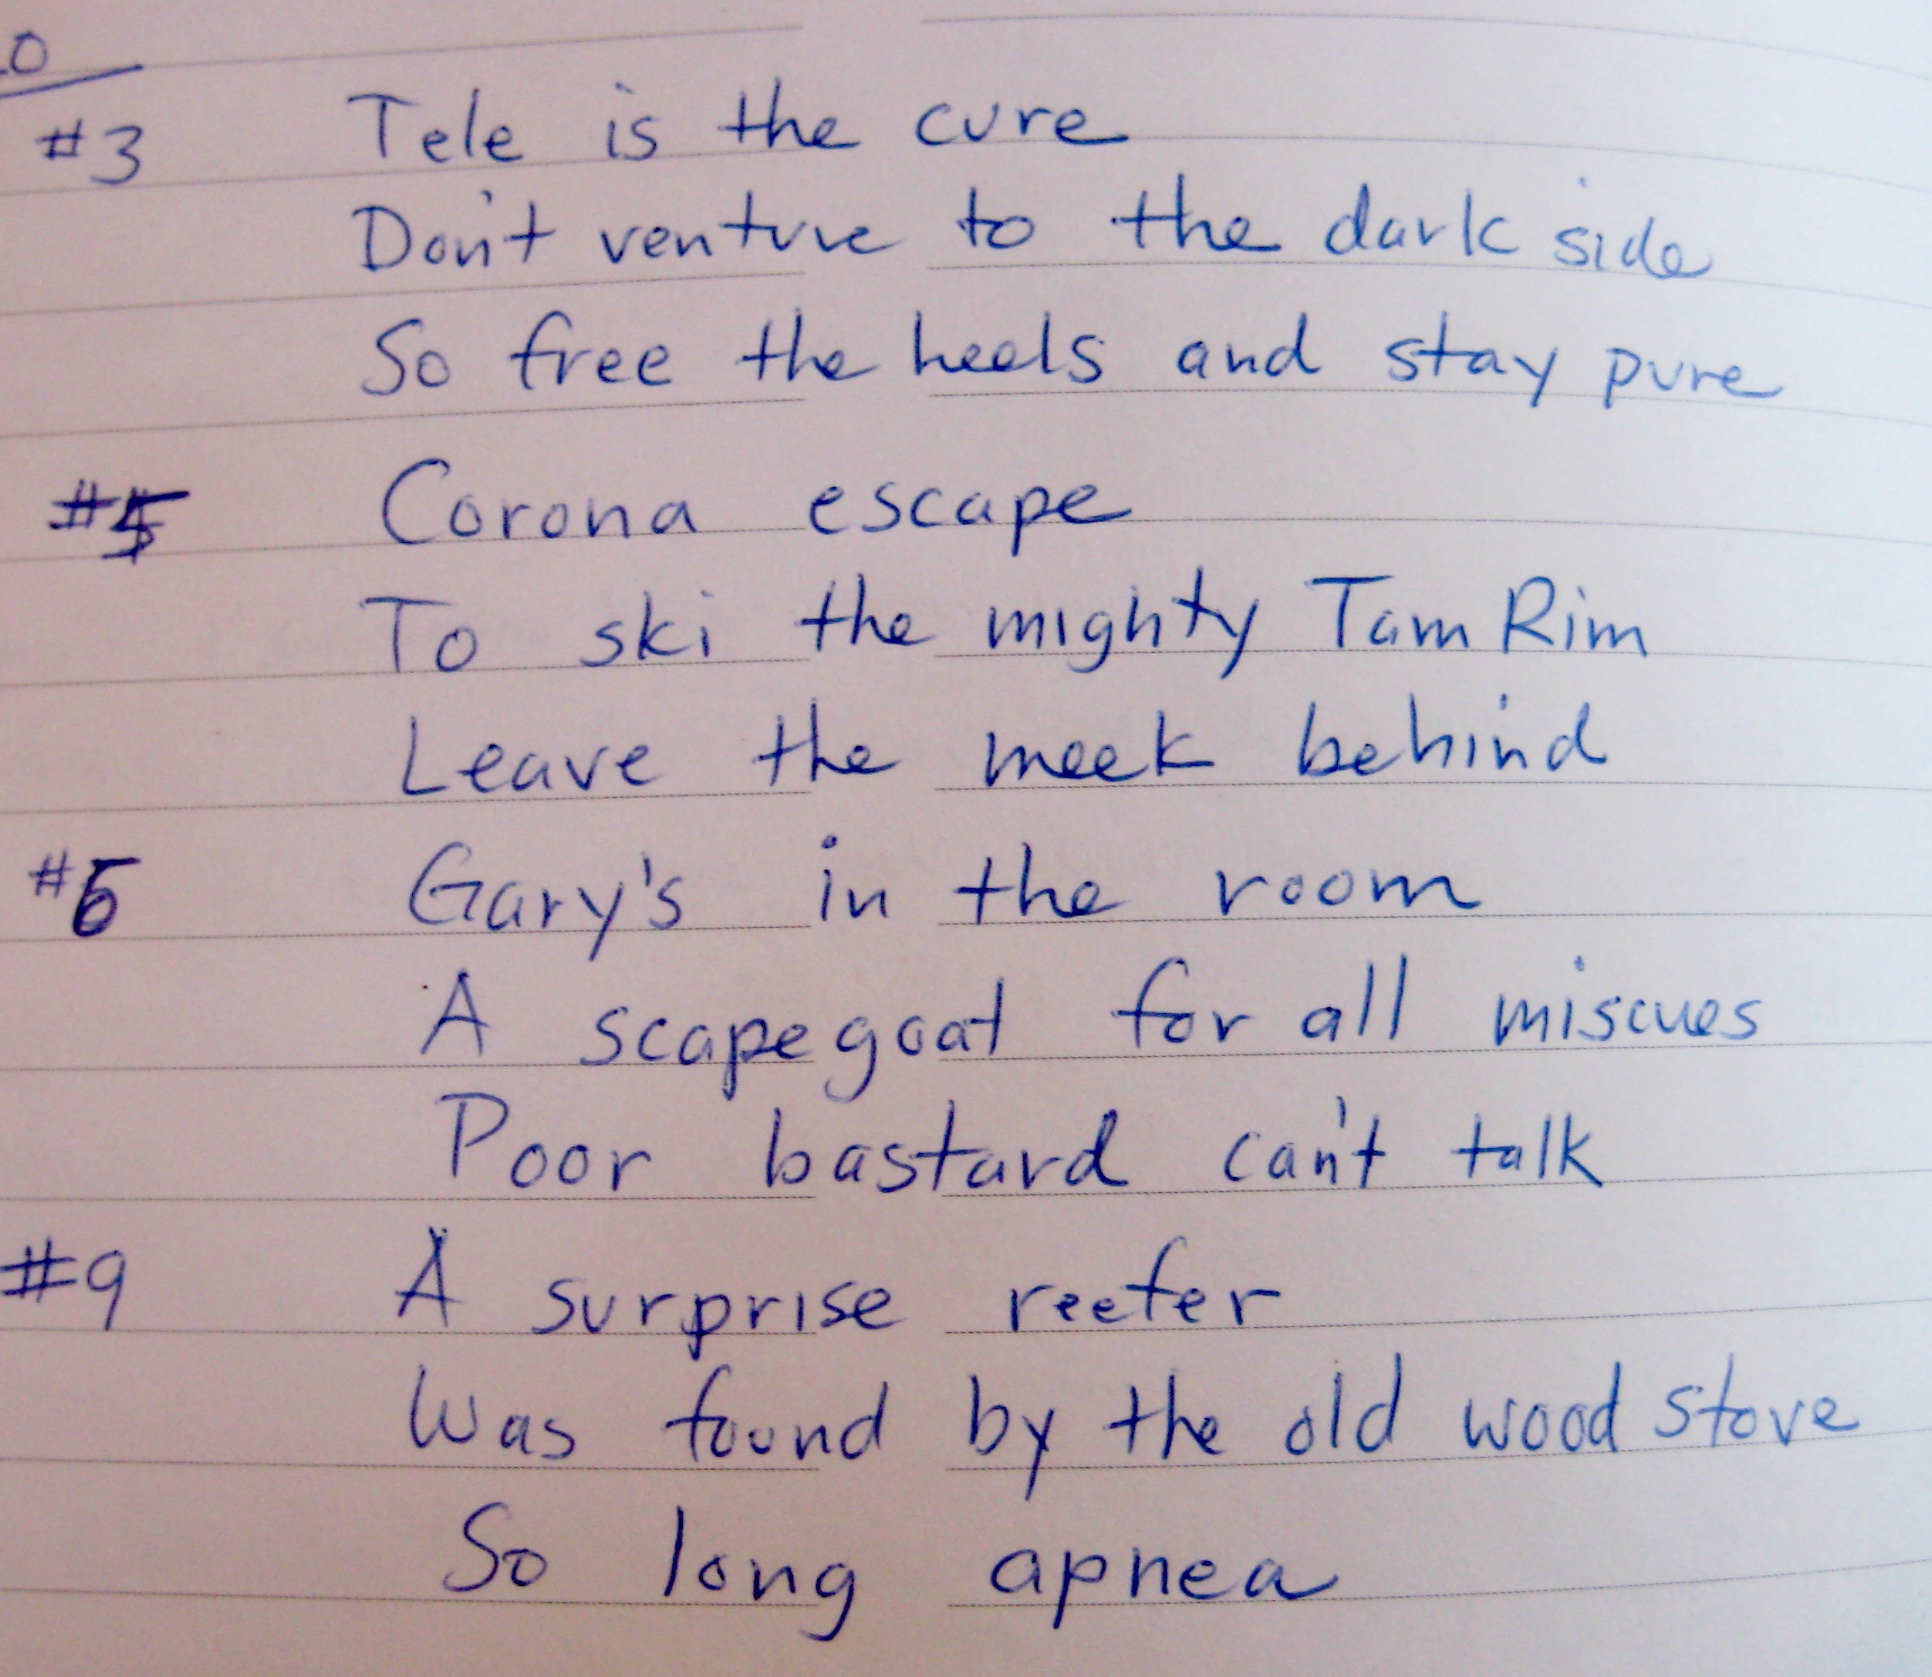 #3 Tele is the cure
Don't venture to the dark side
So free the heels and stay pure
#5 Corona escape
To ski the mighty Tam Rim
Leave the meek behind
#6 Gary's in the room
A scapegoat for all miscues
Poor bastard can't talk
#9 A surprise reefer
Was found by the old wood stove
So long apnea